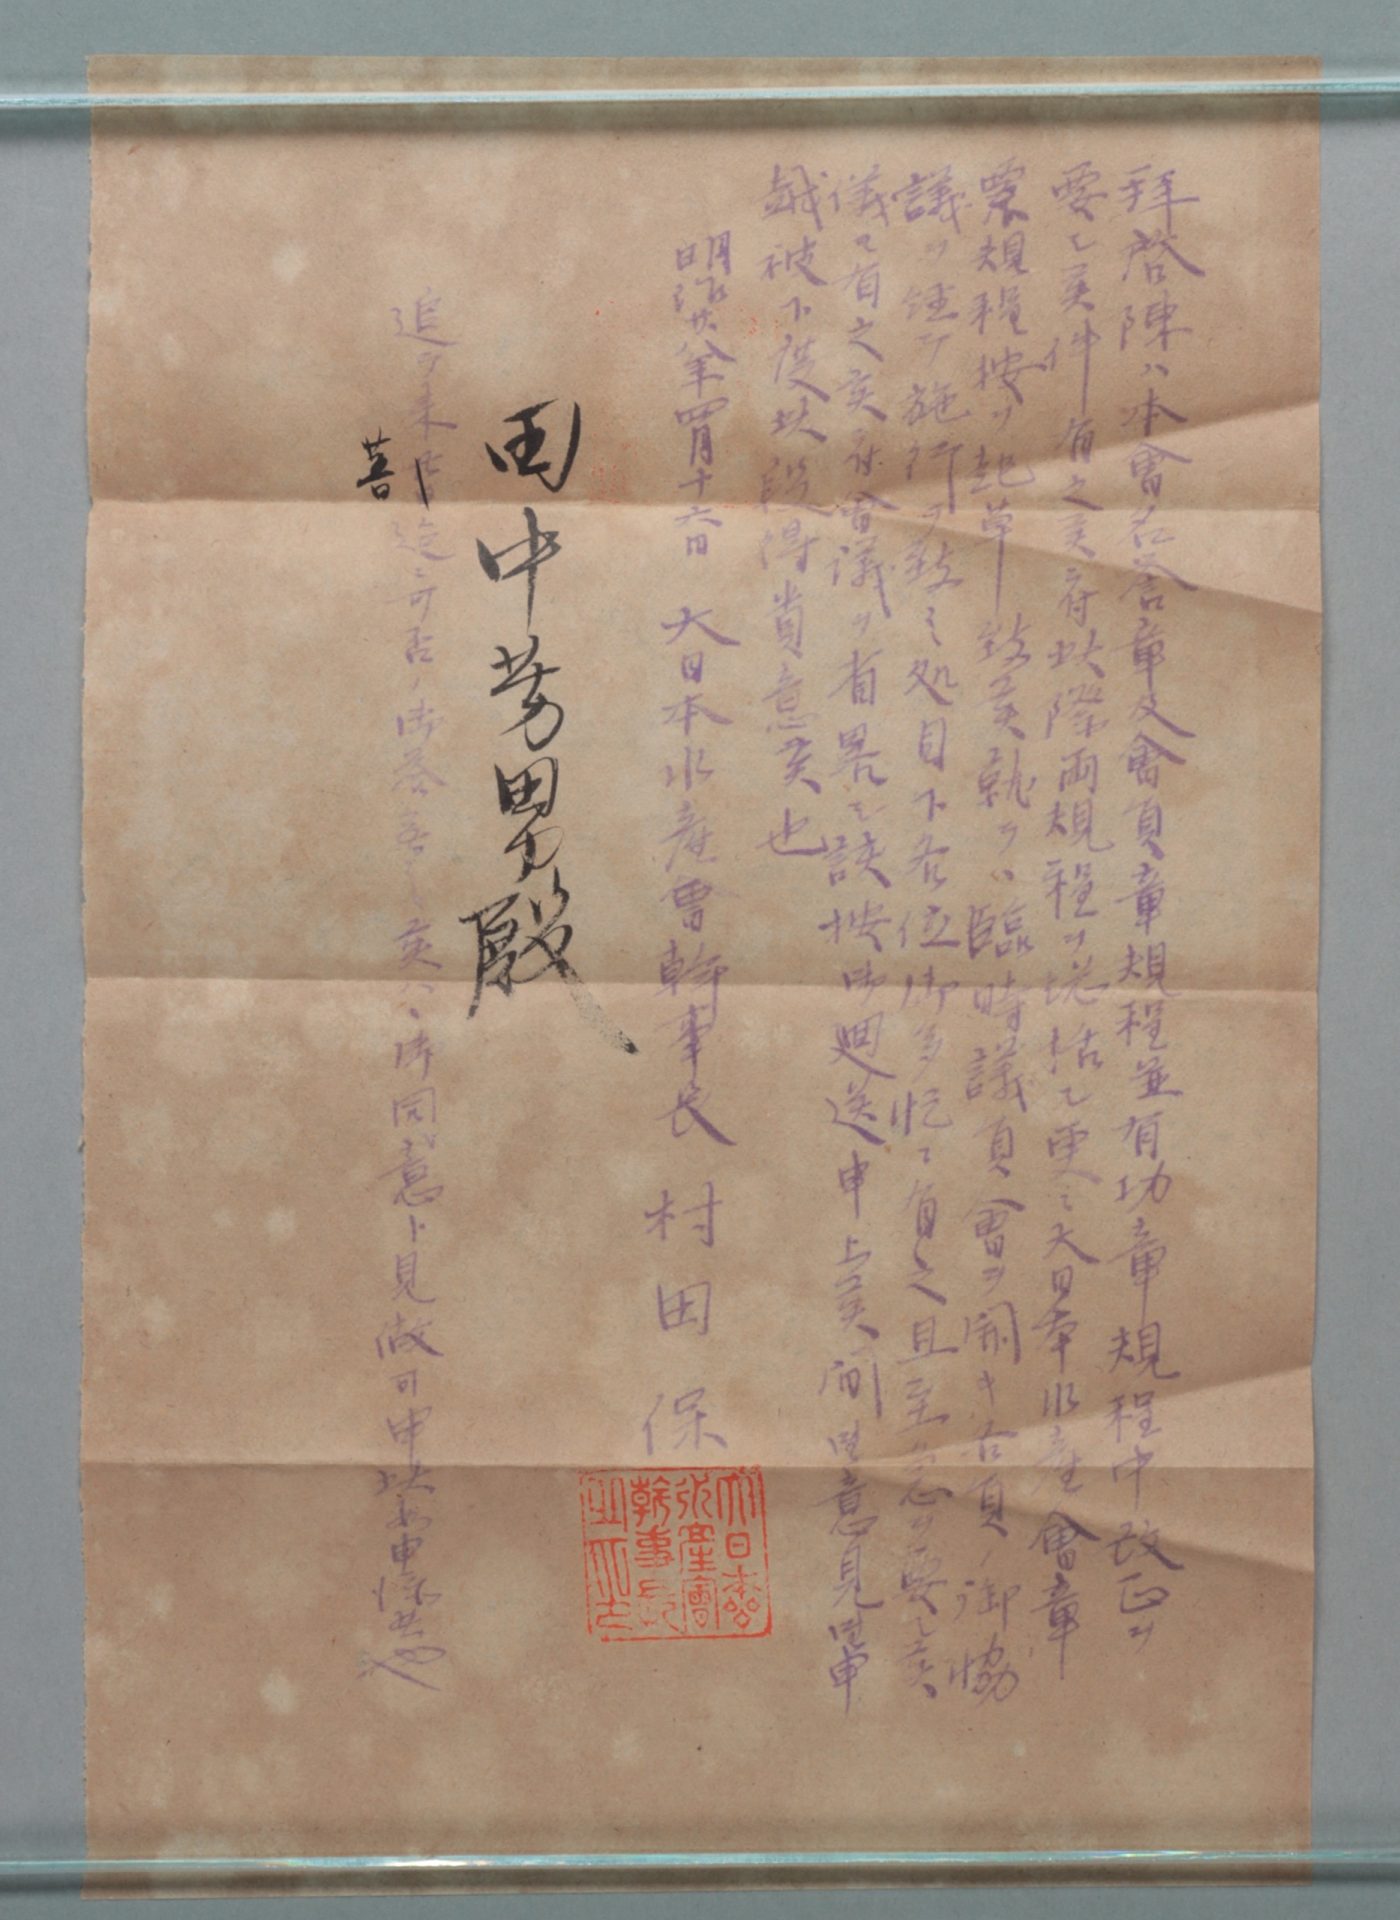 拝啓陳ハ本會名誉章及會員章規程並有功章規程中改正ヲ
要シ候件有之候ニ付此際両規程ヲ概括シ更ニ大日本水産會章
票規程按ヲ起草致候就テハ臨時議員會ヲ開キ各員ノ御協
議ヲ経テ施行ヲ致ス処目下各位御多忙ニ有之且至急ヲ要シ候
儀ニ有之候ニ付會議ヲ省畧シ該按御廻送申上候間御意見御申
越被下度此段得貴意候也
明治廿八年四月十六日 大日本水産會幹事長 村田保
田中芳男殿
追テ来 廿一日 迄ニ可否ノ御答無之候ハヽ御同意ト見做可申此如申添候也
大日本
水産會
幹事長
之印